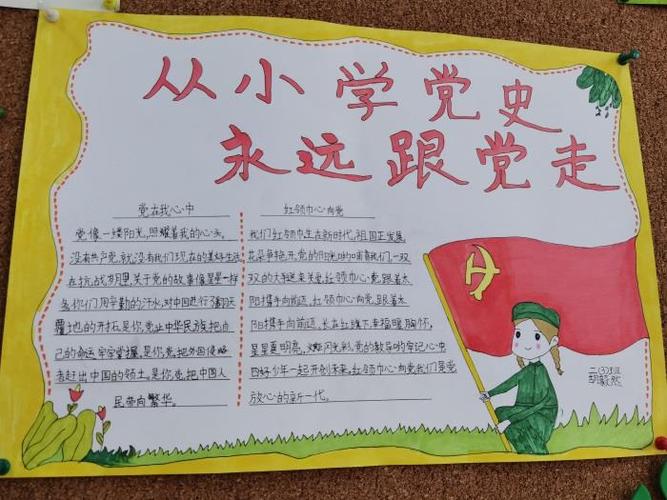 从小学党史
永远跟党走
党在我心中
党像一缕阳光,照耀着我的心头。
没有共产党,就没有我们现在的美好生活
在抗战时里,关于党的故事像星星一样
多你们用辛勤的汗水,对中国进行了翻天
覆地的开拓是你,党让中华民族把自
己的命运牢牢掌握,是你,党把外国侵略
者赶出中国的领土。是你,党把中国人
民带向繁华。
红领巾心向党
我们红领巾生在新时代,祖国正发展
花朵争艳开,党的阳光哺育我们,一双
双的大手送来关爱,红领巾心向党,跟着太
阳携手向前迈,红领巾心向党,跟着太
阳携手向前迈,长在红旗下,幸福暖胸怀,
星星夏明亮,火炬闪光彩,党的教导的牢记心中
四好少年一起开创未来,红领巾心向党我们是党
放心的新一代。
二(3)班
胡毅然